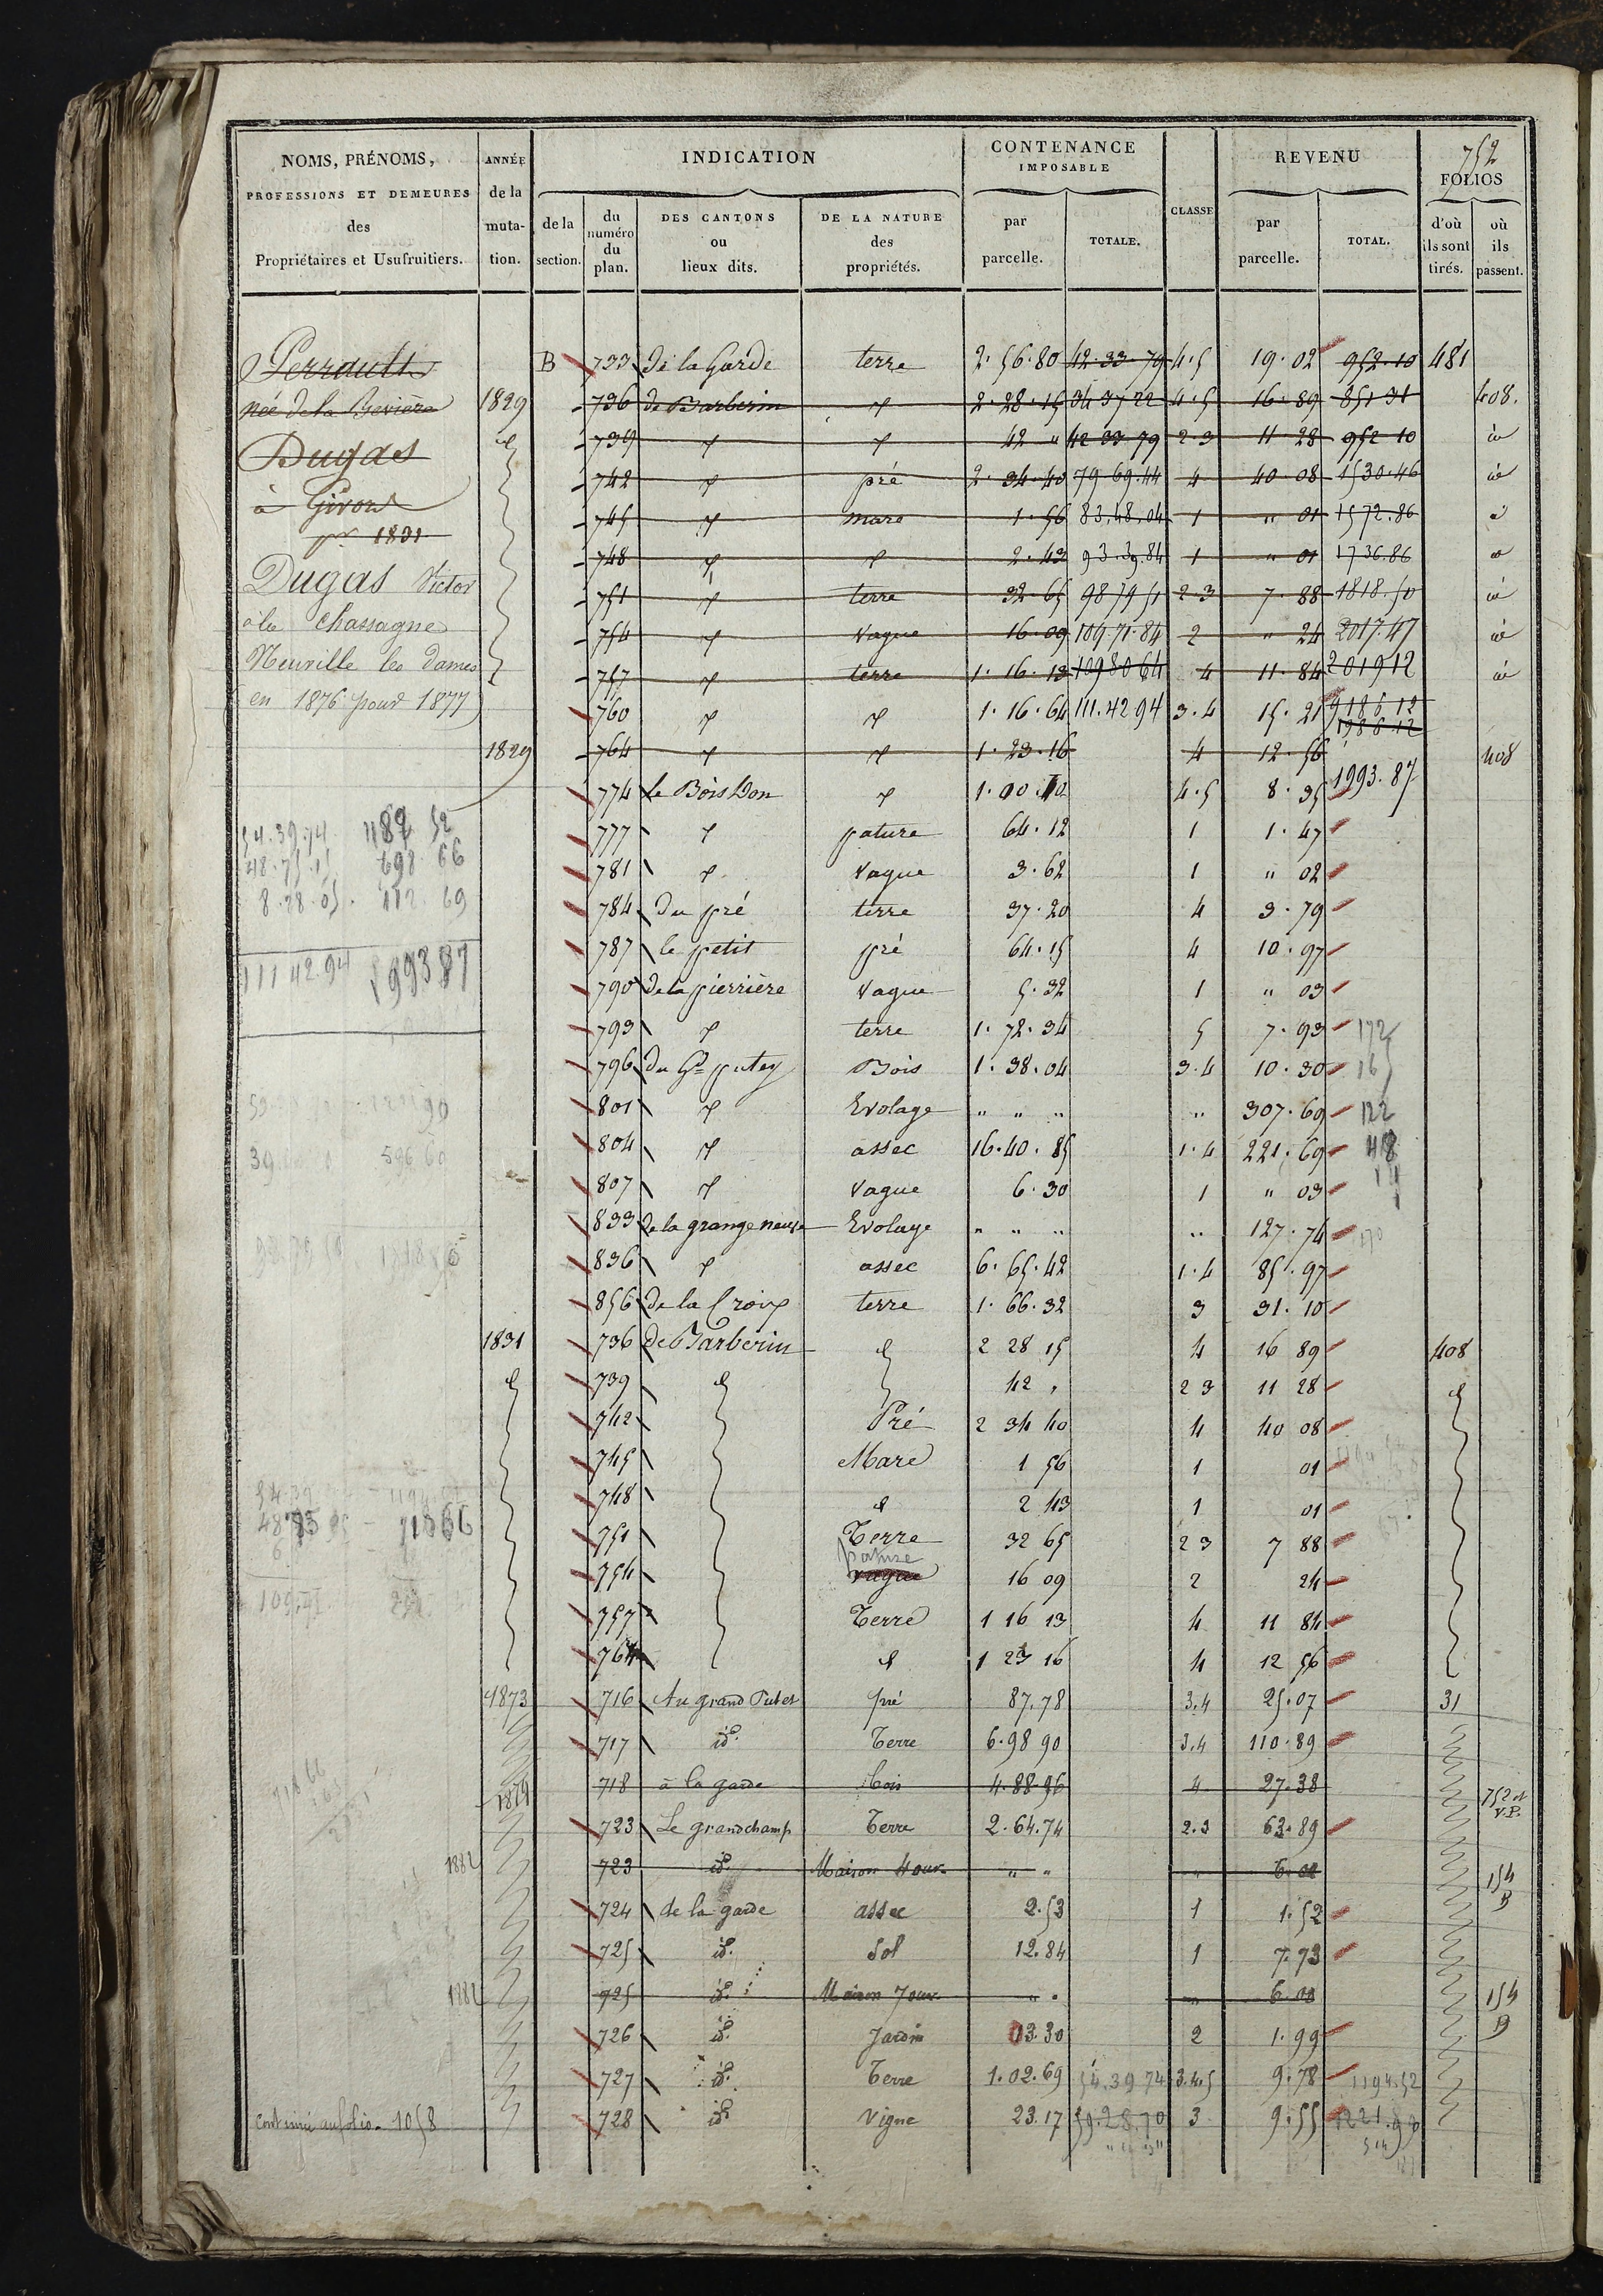 752
NOMS, PRÉNOMS, PROFESSIONS ET DEMEURES des Propriétaires et Usufruitiers.
ANNÉE de la muta-tion.
INDICATION
de la section.
du numéro du plan.
DES CANTONS ou lieux dits.
DE LA NATURE des propriétés.
CONTENANCE IMPOSABLE
par parcelle.
TOTALE.
CLASSE
REVENU
par parcelle.
TOTAL.
FOLIOS
d'où ils sont tirés.
où ils passent.
Perrault
née de la Bevière
Dugas
à Givors
pr 1831
Dugas Victor
à la Chassagne
Neuville les Dames
en 1876 pour 1877
B 733 de la Garde terre 2.56.80 42.33.79 4.5 19.02 952.10 481
1829 736 de Barberin 2.28.15 34 37 22 4.5 16.89 851 31 408.
739 42 " 42 33 79 2.3 11.28 952 10
742 pré 2.34.40 79 69.44 4 40.08 1530.46
745 mare 1.56 83.48.04 1 " 01 1572.86
748 2.43 93.39.84 1 " 01 1736.86
751 terre 32.65 98 79 51 2.3 7.88 1818.50
754 vague 16.09 109.71.84 2 " 24 2017.47
757 terre 1.16.13 109 80 64 4 11.84 2019 12
760 1.16.64 111.42 94 3.4 15.21 1986 12
1829 764 1.23.16 4 12.56 408
774 le Bois Don 4.5 8.35 1993.87
777 pature 64.12 1 1.47
781 vague 3.62 1 " 02
784 du pré terre 37.20 4 3.79
787 le petit pré 64.15 4 10.97
790 de la pierrière vague 5.32 1 " 03
793 terre 1.72.34 5 7.93 172
796 du Gd putey Bois 1.38.04 3.4 10.30 16
801 Evolage " " " " 307.69 122
804 assec 16.40.85 1.4 221.69 48
807 vague 6.30 1 " 03
833 de la grange neuve Evolage " " " " 127.74
836 assec 6.65.42 1.4 85.97
856 de la Croix terre 1.66.32 3 31.10
1831 736 De Barberin 2 28 15 4 16 89 408
739 42 " 2 3 11 28
742 Pré 2 34 40 4 40 08
745 Mare 1 56 1 01
748 2 43 1 01
751 Terre 32 65 2 3 7 88
pature
754 vague 16 09 2 24
757 Terre 1 16 13 4 11 84
764 1 23 16 4 12 56
1873 716 Au grand Putet pré 87.78 3.4 25.07 31
717 id. Terre 6.98 90 3.4 110.89
1874 718 à la garde bois 4.88.96 4 27.38 752 et V.P.
723 Le grandchamp Terre 2.64.74 2.3 63.89
1882 723 id. Maison 4 ouv. " " " 6.00 154
724 de la garde assec 2.53 1 1.52
725 id. Sol 12.84 1 7.73
1882 725 id. Maison 7 ouv. " " 6.00 154
726 id. Jardin 03.30 2 1.99
727 id. Terre 1.02.69 54.39 74 3.4.5 9.78 1194.52
728 id. Vigne 23.17 59.28.70 3 9.55 1221.90
54.39.74 1187 52
48.75.15 698.66
8.28.05. 112.69
111 42.94 1993 87
continué au folio. 1058